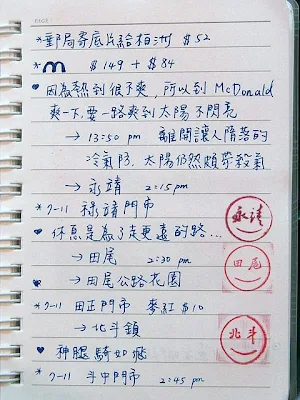 *郵局寄底片給柏澍 $52
* m $149 + $84
♥ 因為熱到很不爽，所以到 McDonald
爽一下，要一路爽到太陽不閃亮
→ 13:50 pm 離開讓人墮落的
冷氣房，太陽仍然頗帶殺氣
→ 永靖 2:15 pm
* 7-11 祿靖門市
♥ 休息是為了走更遠的路...
→ 田尾 2:30 pm
♥ → 田尾公路花園
* 7-11 田正門市 麥紅 $10
→ 北斗鎮
♥ 神腿騎如飛
* 7-11 斗中門市 2:45 pm
永靖
田尾
北斗